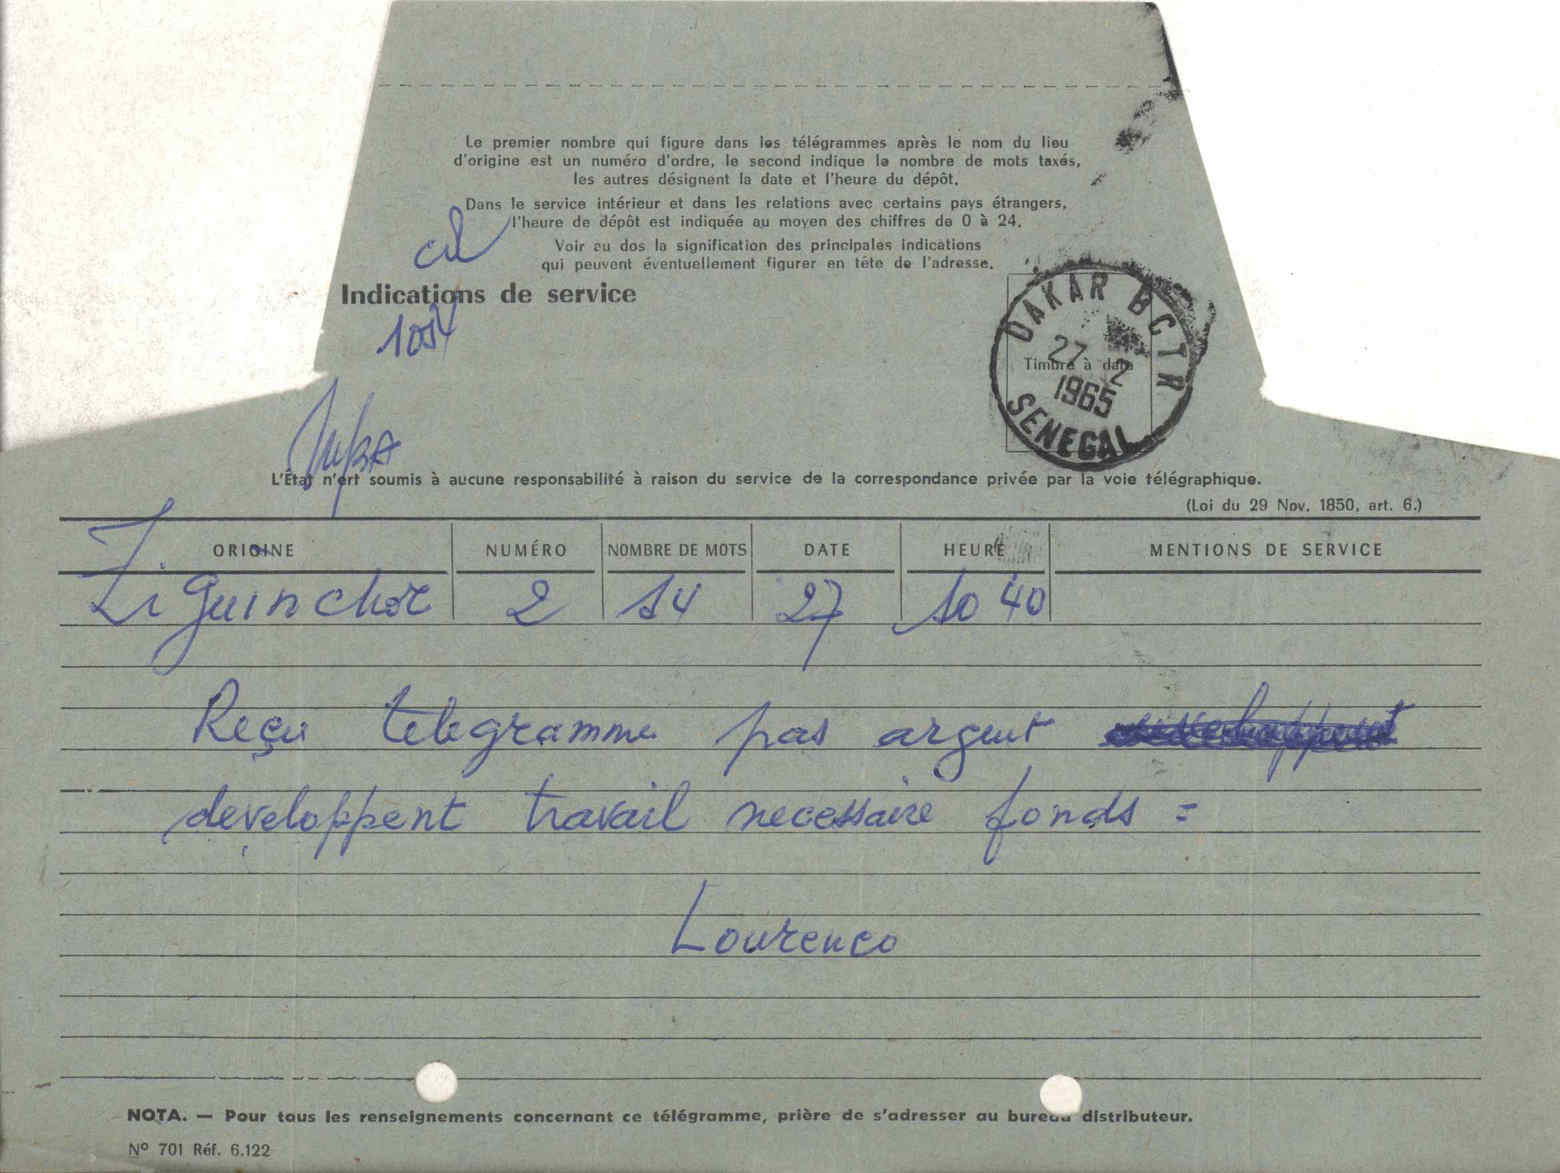 Le premier nombre qui figure dans les télégrammes après le nom du lieu
d'origine est un numéro d'ordre, le second indique le nombre de mots taxés,
les autres désignent la date et l'heure du dépôt.
Dans le service intérieur et dans les relations avec certains pays étrangers,
l'heure de dépôt est indiquée au moyen des chiffres de 0 à 24.
Voir au dos la signification des principales indications
qui peuvent éventuellement figurer en tête de l'adresse.
Indications de service
DAKAR BCTR
27 2
1965
SENEGAL
Timbre à date
L'État n'ert soumis à aucune responsabilité à raison du service de la correspondance privée par la voie télégraphique.
(Loi du 29 Nov. 1850, art. 6.)
ORIGINE NUMÉRO NOMBRE DE MOTS DATE HEURE MENTIONS DE SERVICE
Ziguinchor 2 14 27 10 40
Reçu telegramme pas argent
developpent travail necessaire fonds =
Lourenco
NOTA. — Pour tous les renseignements concernant ce télégramme, prière de s'adresser au bureau distributeur.
Nº 701 Réf. 6.122